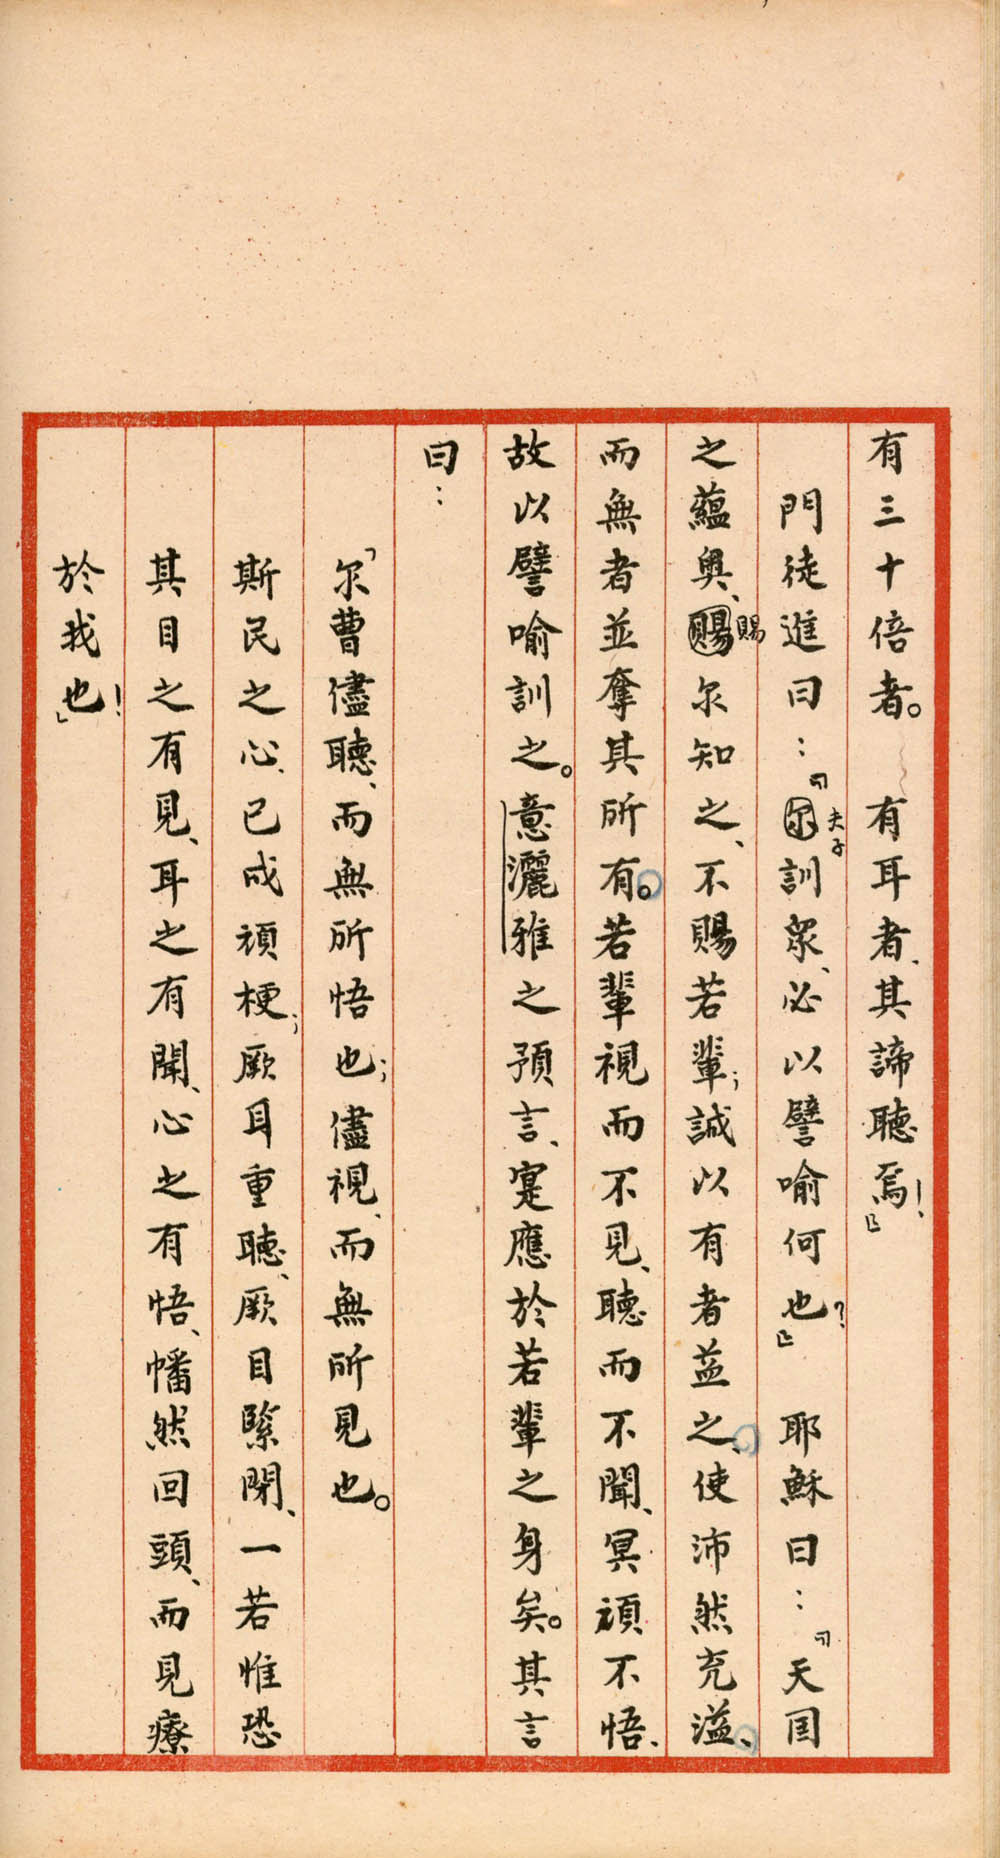 有三十倍者。有耳者、其諦聽焉！』
門徒進曰：『尔夫子訓眾、必以譬喻何也？』耶穌曰：『天囯
之蘊奧、賜賜尔知之、不賜若輩；誠以有者益之、使沛然充溢、
而無者並奪其所有。若輩視而不見、聽而不聞、冥頑不悟、
故以譬喻訓之。意灑雅之預言、寔應於若輩之身矣。其言
曰：
「尔曹儘聽、而無所悟也；儘視、而無所見也。
斯民之心、已成頑梗；厥耳重聽、厥目緊閉、一若惟恐
其目之有見、耳之有聞、心之有悟、幡然回頭、而見療
於我也！」